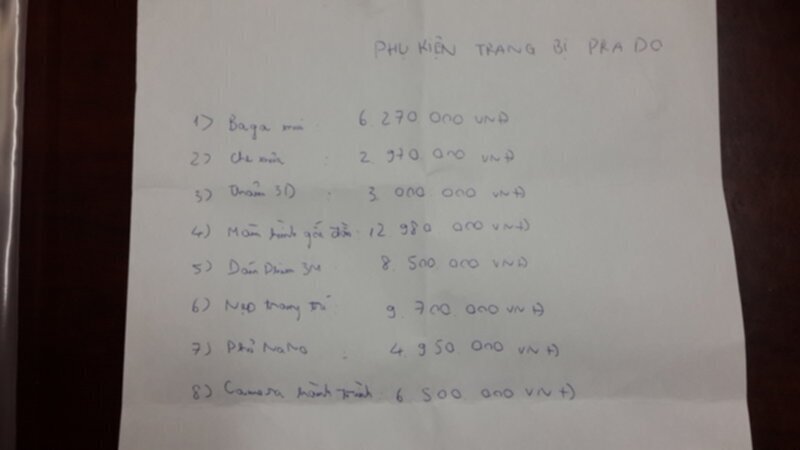 PHỤ KIỆN TRANG BỊ PRADO
1) Baga mui : 6.270.000 VNĐ
2) Che mưa : 2.970.000 VNĐ
3) Thảm 3D : 3.000.000 VNĐ
4) Màn hình gối đầu : 12.980.000 VNĐ
5) Dán phim 3M 8.500.000 VNĐ
6) Nẹp trang trí : 9.700.000 VNĐ
7) Phủ NaNo : 4.950.000 VNĐ
8) Camera hành trình : 6.500.000 VNĐ